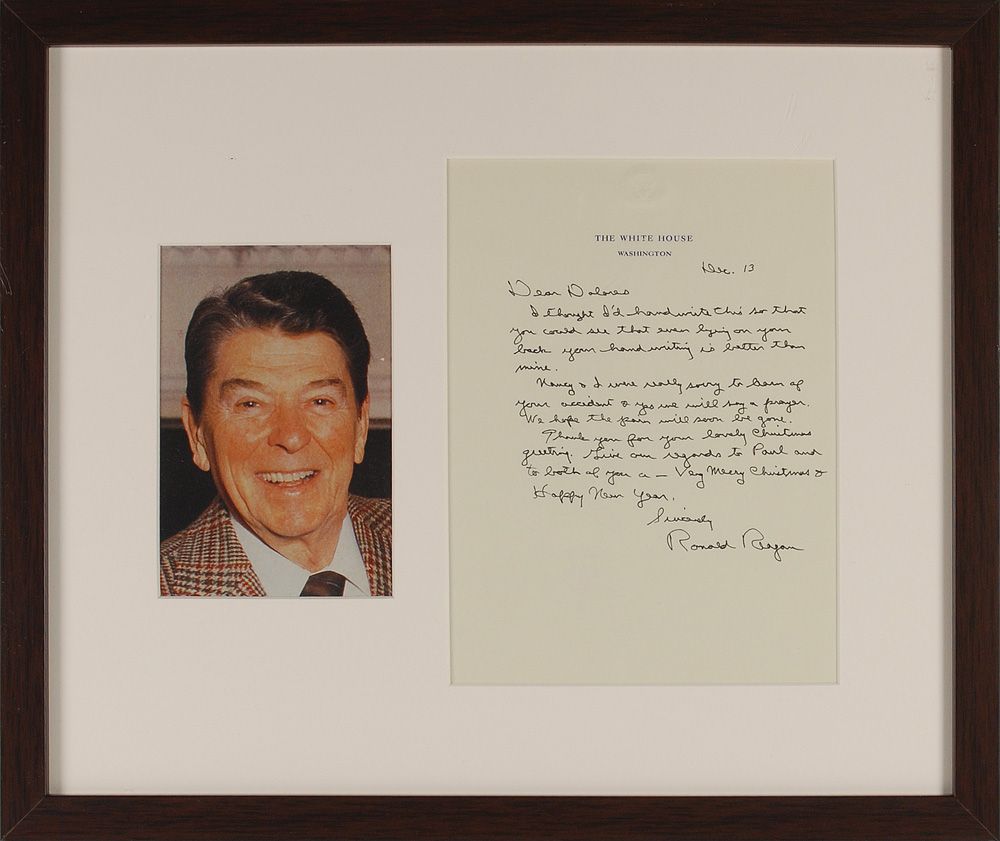 THE WHITE HOUSE
WASHINGTON
Dec. 13
Dear Dolores
I thought I'd handwrite this so that
you could see that even lying on your
back your handwriting is better than
mine.
Nancy & I were really sorry to hear of
your accident & yes we will say a prayer.
We hope the pain will soon be gone.
Thank you for your lovely Christmas
greeting. Give our regards to Paul and
to both of you a — Very Merry Christmas &
Happy New Year.
Sincerely
Ronald Reagan